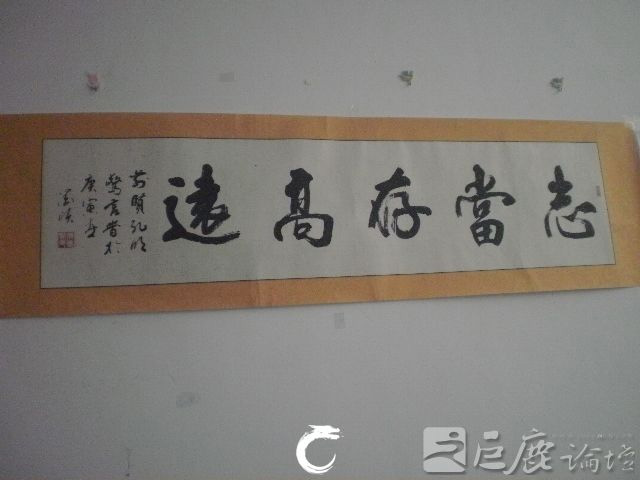 志當存高遠
前賢孔明
警言書於
庚寅年
巨鹿论坛